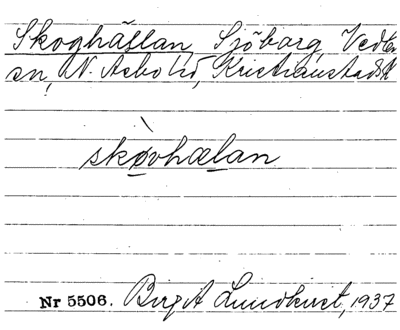 Skoghällan, Sjöborg, Vedby
sn, N. Åsbo hd, Kristianstads l.
skòvhælan
Nr 5506. Birgit Lundkvist, 1937